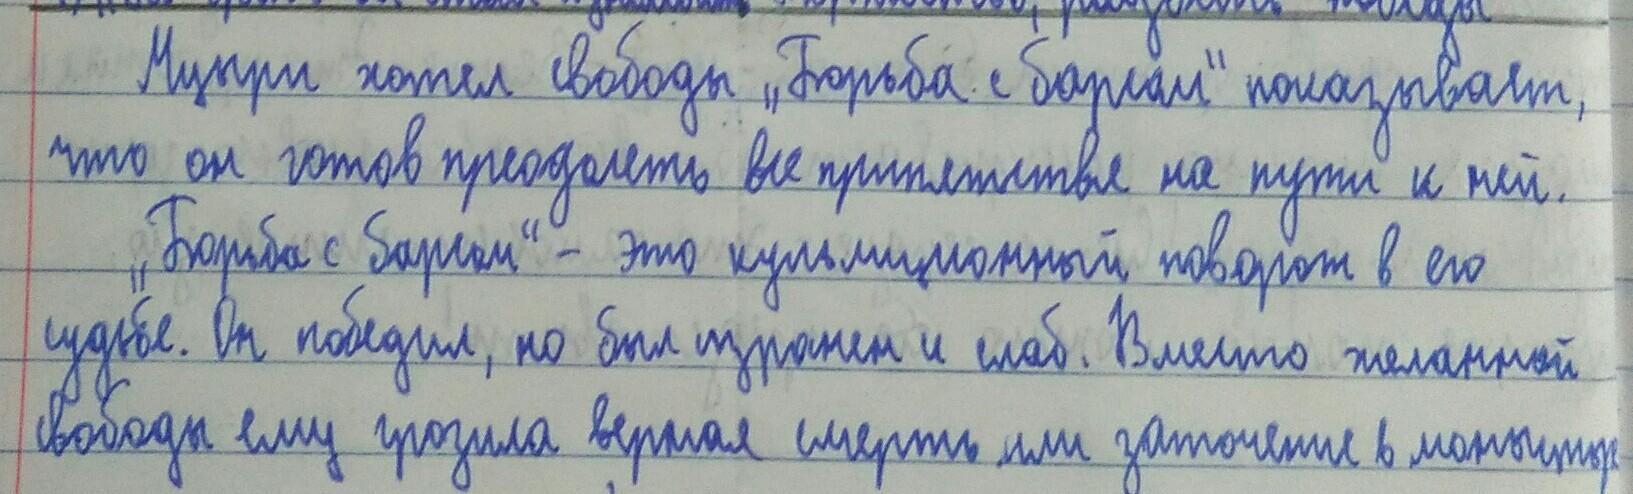 Мцыри хотел свободы „Борьба с барсом“ показывает,
что он готов преодолеть все припятствия на пути к ней.
„Борьба с барсом“ – это кульмиционный поворот в его
судьбе. Он победил, но был изранен и слаб. Вместо желанной
свободы ему грозила верная смерть или заточение в